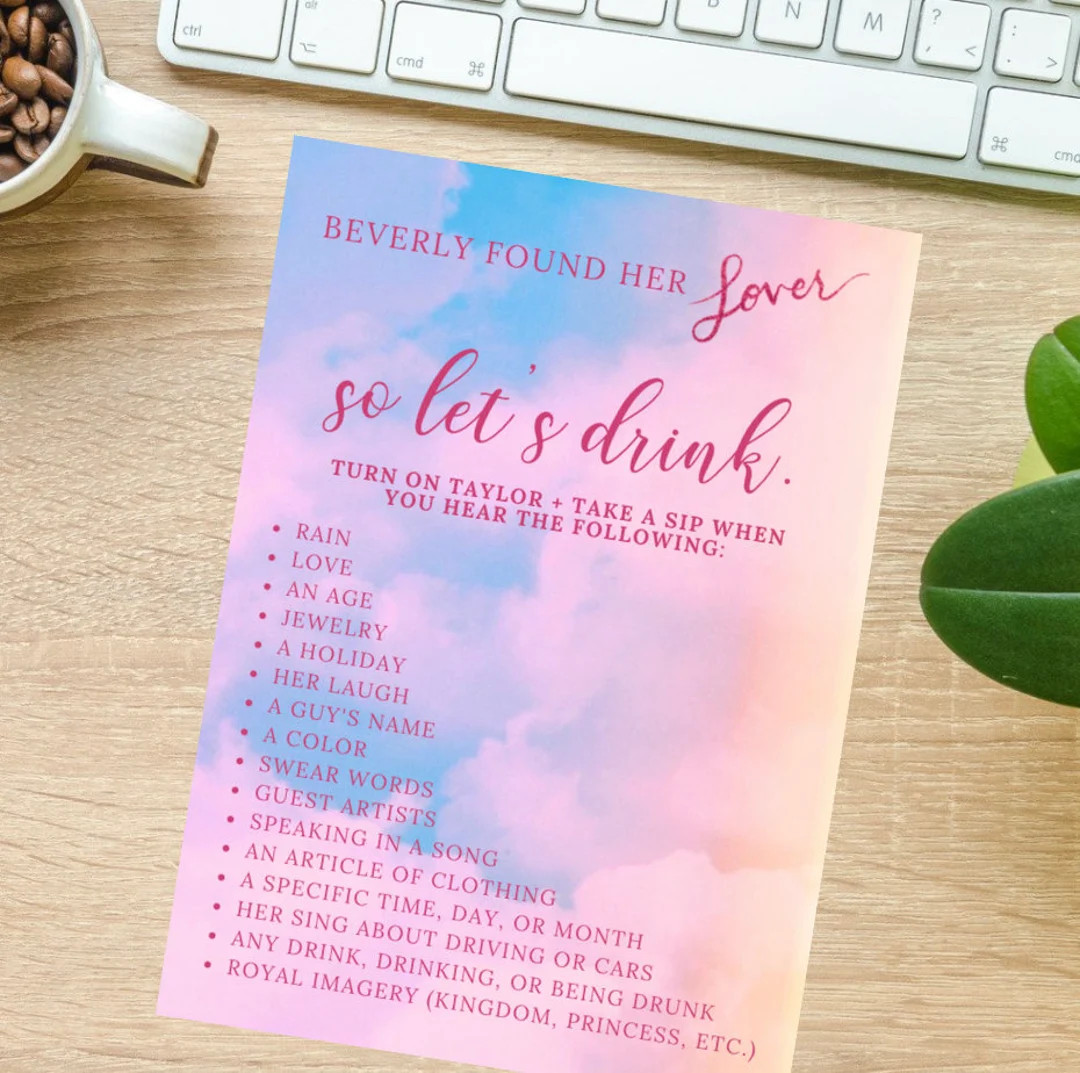 ctrl
alt
cmd
B
N
M
?
, <
:
. >
cmd
BEVERLY FOUND HER Lover
so let's drink.
TURN ON TAYLOR + TAKE A SIP WHEN
YOU HEAR THE FOLLOWING:
• RAIN
• LOVE
• AN AGE
• JEWELRY
• A HOLIDAY
• HER LAUGH
• A GUY'S NAME
• A COLOR
• SWEAR WORDS
• GUEST ARTISTS
• SPEAKING IN A SONG
• AN ARTICLE OF CLOTHING
• A SPECIFIC TIME, DAY, OR MONTH
• HER SING ABOUT DRIVING OR CARS
• ANY DRINK, DRINKING, OR BEING DRUNK
• ROYAL IMAGERY (KINGDOM, PRINCESS, ETC.)